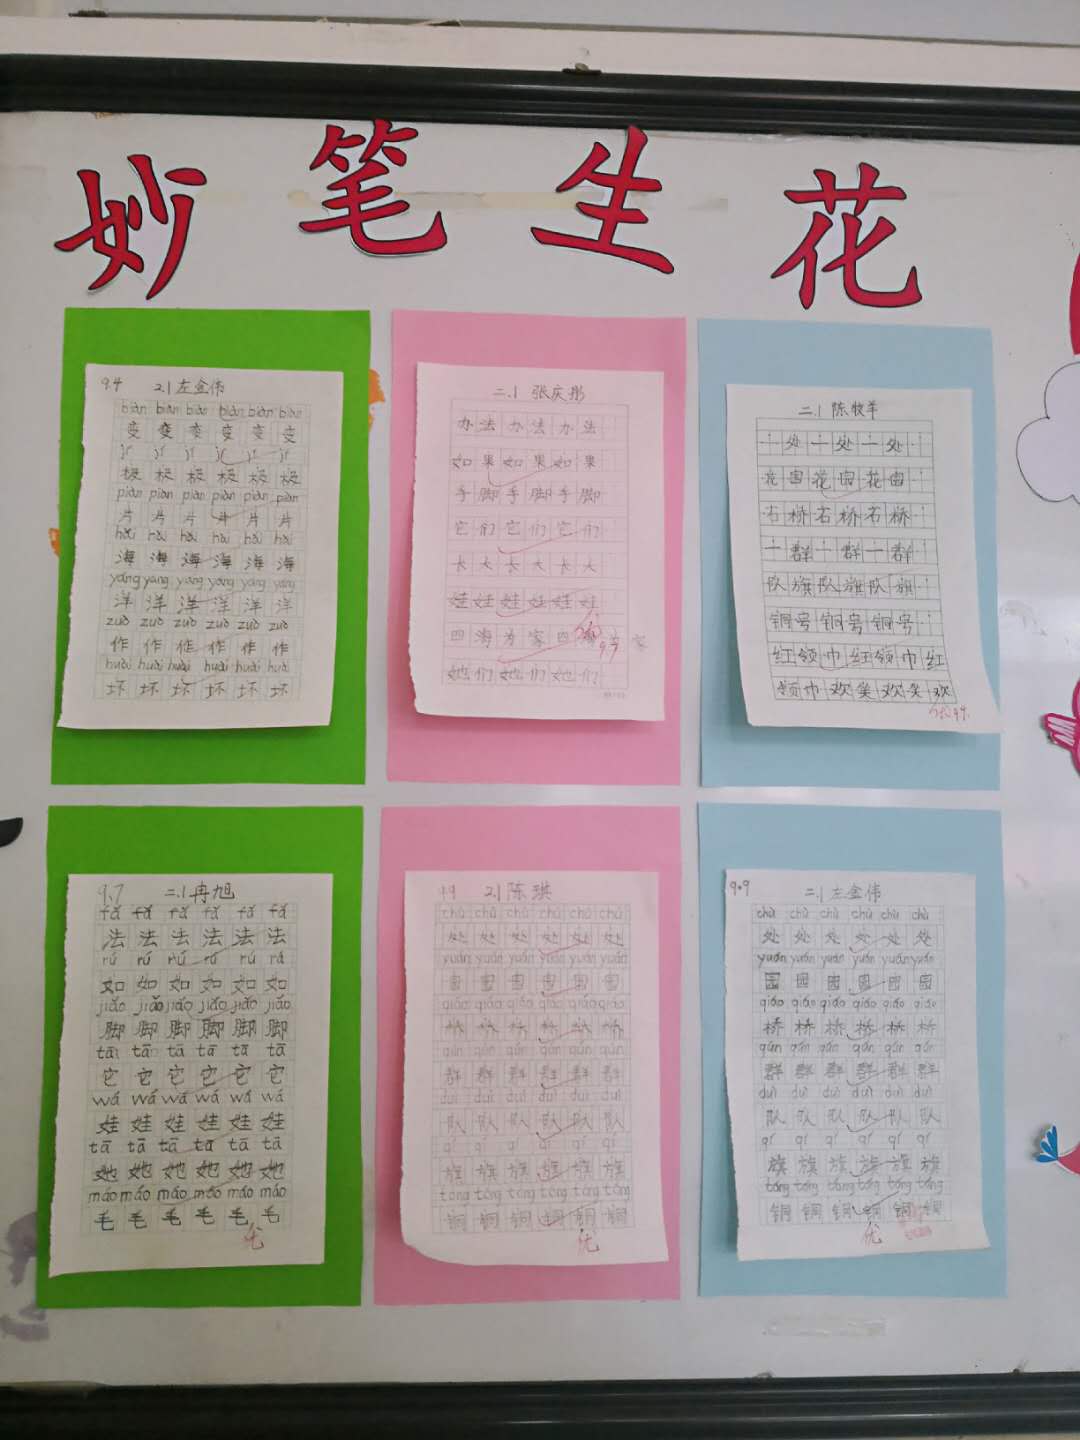 妙笔生花
9.4 2.1 左金伟
biàn biàn biàn biàn biàn biàn
变 变 变 变 变 变
jí jí jí jí jí jí
极 极 极 极 极 极
piàn piàn piàn piàn piàn piàn
片 片 片 片 片 片
hǎi hǎi hǎi hǎi hǎi hǎi
海 海 海 海 海 海
yáng yáng yáng yáng yáng yáng
洋 洋 洋 洋 洋 洋
zuò zuò zuò zuò zuò zuò
作 作 作 作 作 作
huài huài huài huài huài huài
坏 坏 坏 坏 坏 坏
二.1 张庆彤
办法办法办法
如果如果如果
手脚手脚手脚
它们它们它们
长大长大长大
娃娃娃娃娃娃
四海为家四海为家
9.7
她们她们她们
二.1 陈牧羊
一处一处
花园花园花园
石桥石桥石桥
一群一群一群
队旗队旗队旗
铜号铜号铜号
红领巾红领巾红
领巾欢笑欢笑欢
9.7 二.1 冉旭
fǎ fǎ fǎ fǎ fǎ fǎ
法 法 法 法 法 法
rú rú rú rú rú rú
如 如 如 如 如 如
jiǎo jiǎo jiǎo jiǎo jiǎo jiǎo
脚 脚 脚 脚 脚 脚
tā tā tā tā tā tā
它 它 它 它 它 它
wá wá wá wá wá wá
娃 娃 娃 娃 娃 娃
tā tā tā tā tā tā
她 她 她 她 她 她
máo máo máo máo máo máo
毛 毛 毛 毛 毛 毛
优
2.1 陈琪
chù chù chù chù chù chù
处 处 处 处 处 处
yuán yuán yuán yuán yuán yuán
园 园 园 园 园 园
qiáo qiáo qiáo qiáo qiáo qiáo
桥 桥 桥 桥 桥 桥
qún qún qún qún qún qún
群 群 群 群 群 群
duì duì duì duì duì duì
队 队 队 队 队 队
qí qí qí qí qí qí
旗 旗 旗 旗 旗 旗
tóng tóng tóng tóng tóng tóng
铜 铜 铜 铜 铜 铜
优
9.9 二.1 左金伟
chù chù chù chù chù chù
处 处 处 处 处 处
yuán yuán yuán yuán yuán yuán
园 园 园 园 园 园
qiáo qiáo qiáo qiáo qiáo qiáo
桥 桥 桥 桥 桥 桥
qún qún qún qún qún qún
群 群 群 群 群 群
duì duì duì duì duì duì
队 队 队 队 队 队
qí qí qí qí qí qí
旗 旗 旗 旗 旗 旗
tóng tóng tóng tóng tóng tóng
铜 铜 铜 铜 铜 铜
优